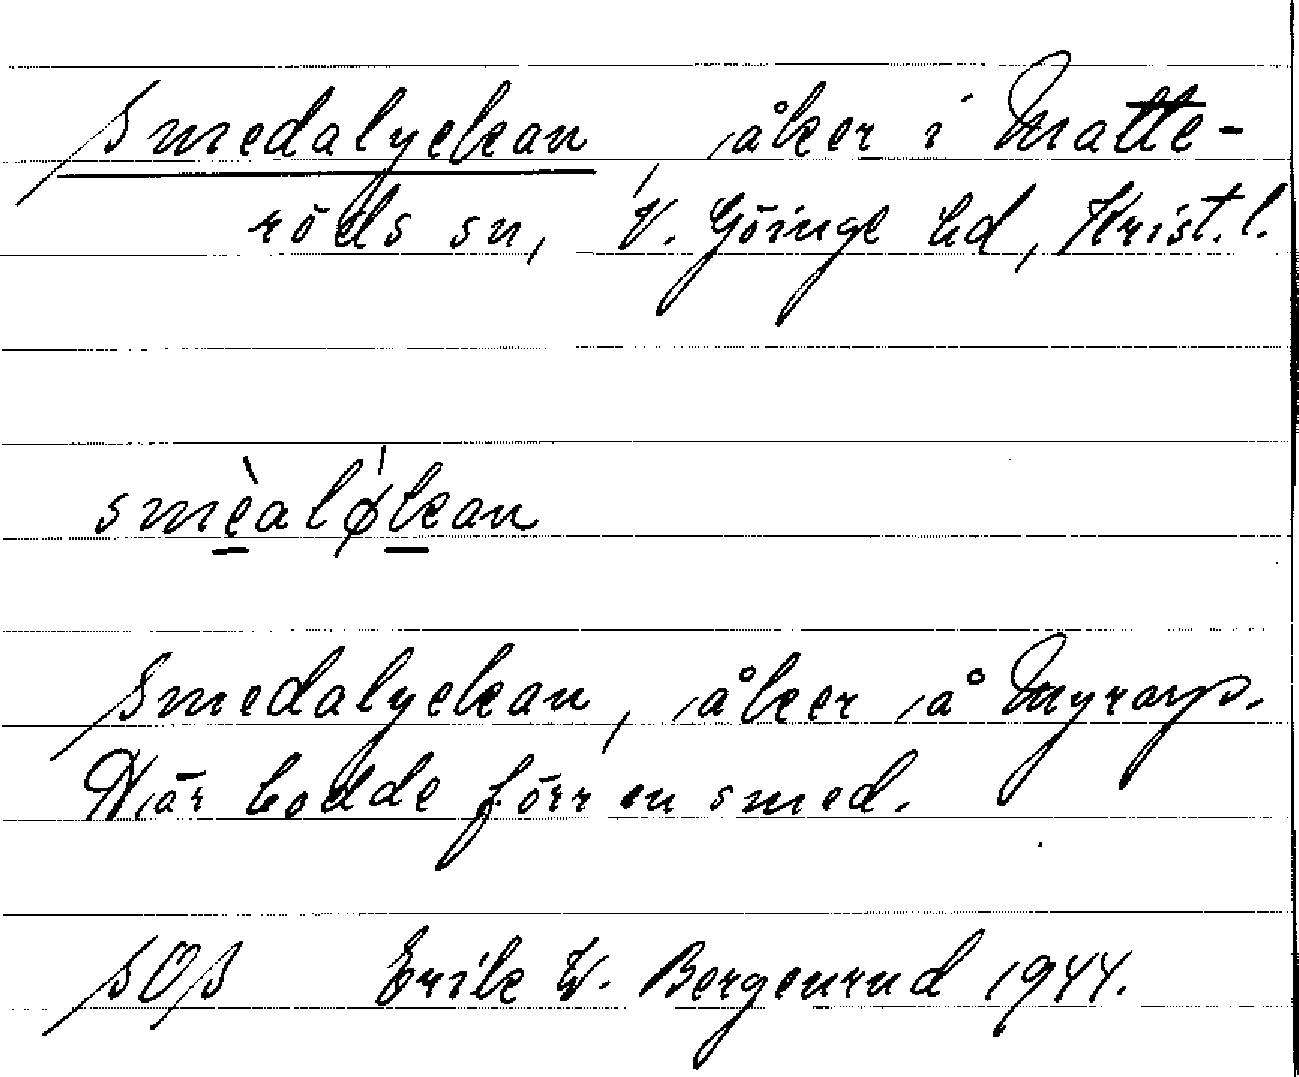 Smedalyckan, åker i Matte-
röds sn, V. Göinge hd, Krist. l.
smèalø̀kan
Smedalyckan, åker å Myrarp.
Där bodde förr en smed.
SOS Erik W. Bergenrud 1944.